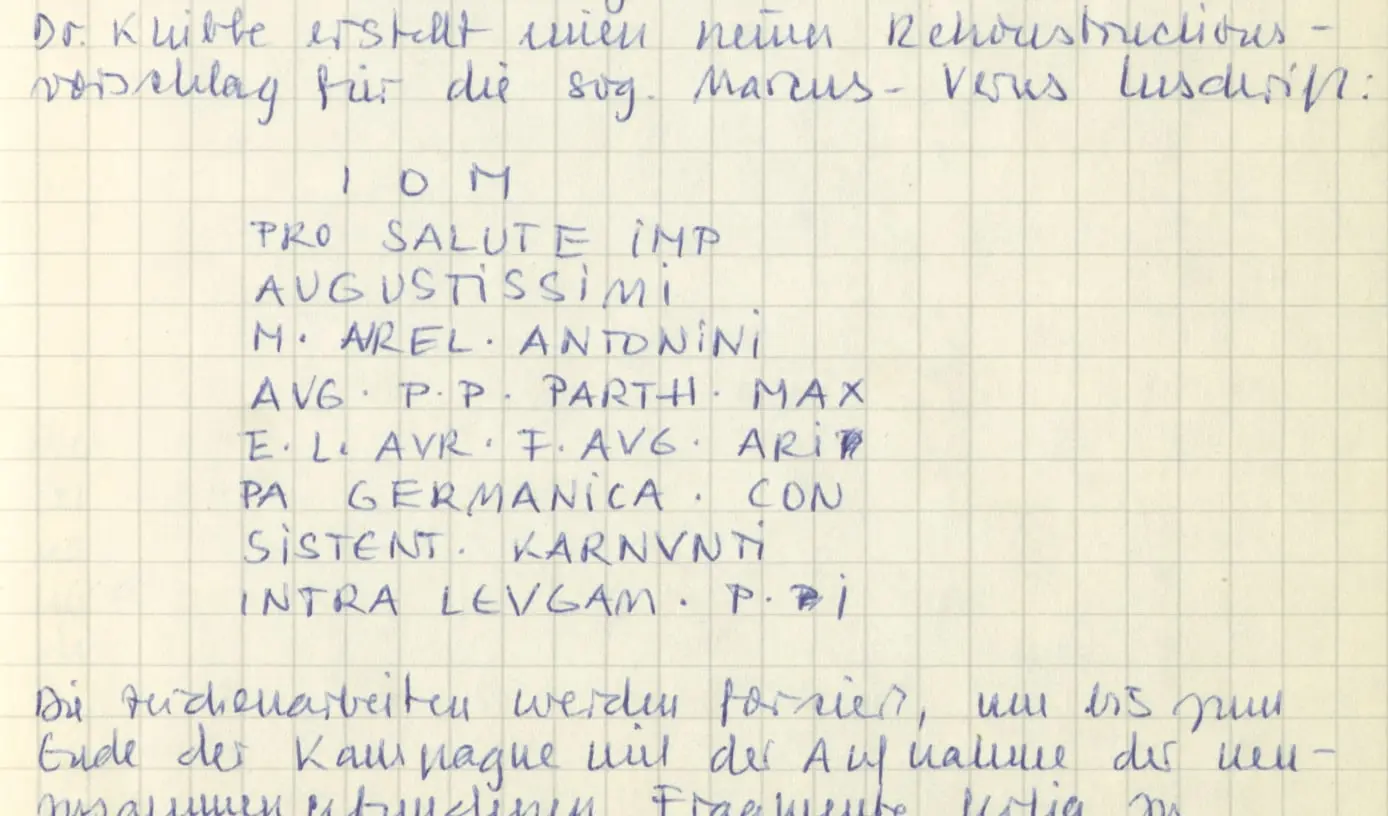 Dr. Knibbe erstellt einen neuen Rekonstructions-
vorschlag für die sog. Marcus-Verus Inschrift:
I O M
PRO SALUTE IMP
AUGUSTISSIMI
M. AUREL. ANTONINI
AVG. P. P. PARTH. MAX
E. L. AVR. F. AVG. ARIP
PA GERMANICA. CON
SISTENT. KARNVNTI
INTRA LEVGAM. P. I
Die Zeichenarbeiten werden forciert, um bis zum
Ende der Kampagne mit der Aufnahme der neu-
Fragmente fertig zu